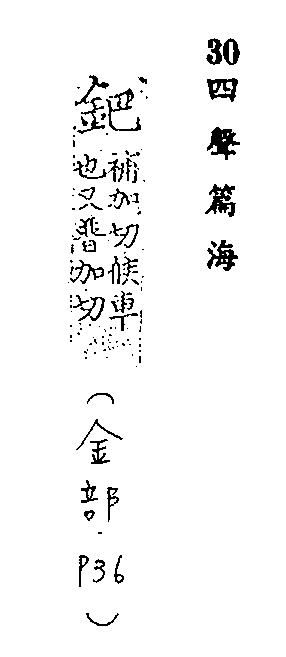 30 四聲篇海
鈀 補加切候車也又普加切
（金部 P36）